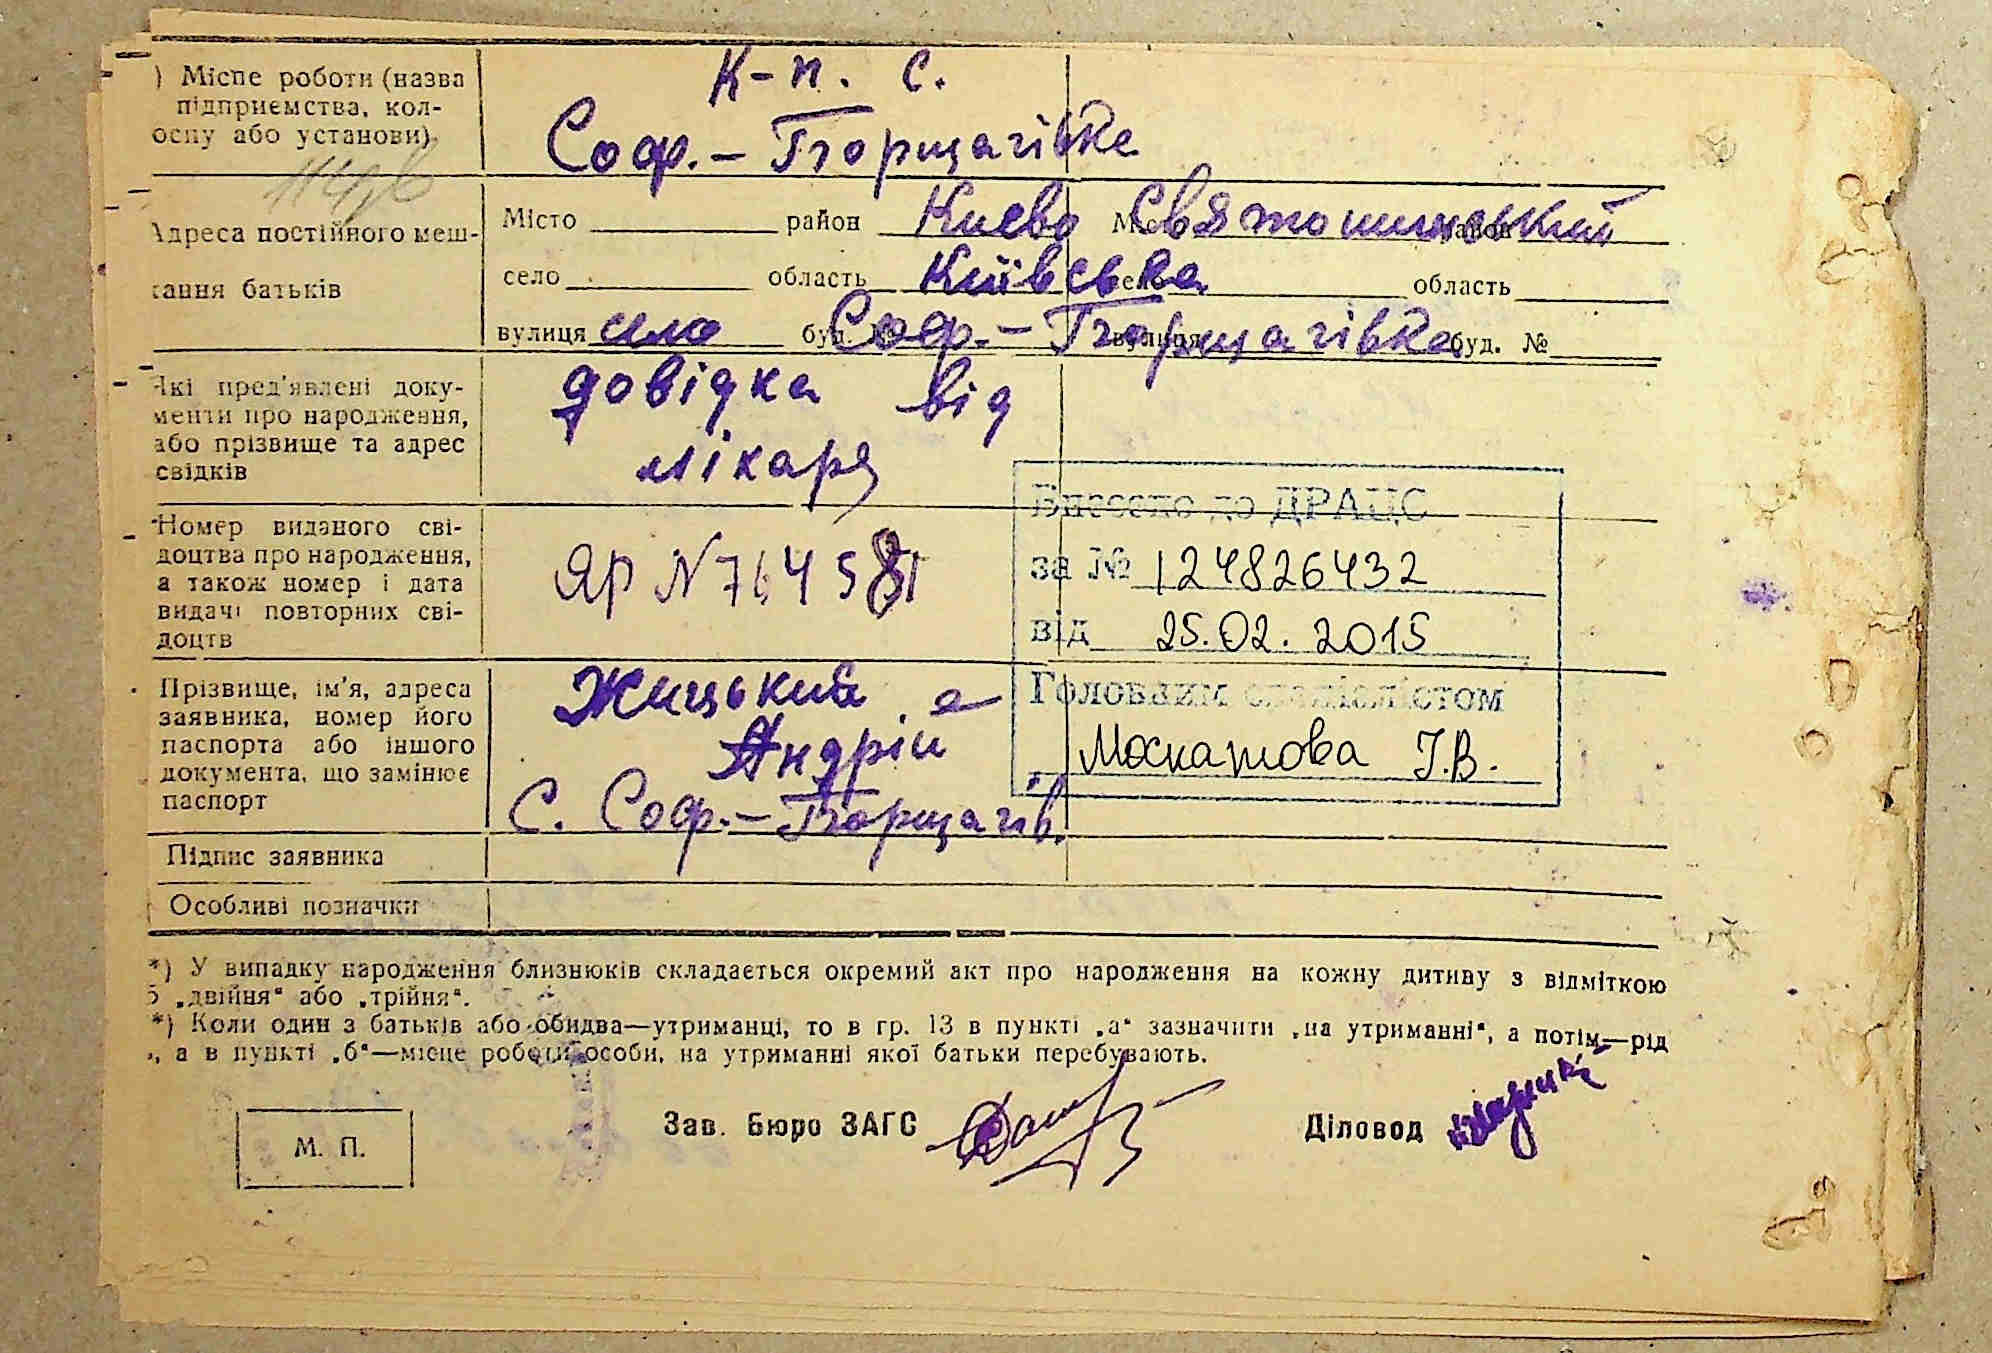 ) Місце роботи (назва
підприємства, кол-
оспу або установи).
К-п. с.
Соф.- Борщагівка
Адреса постійного меш-
кання батьків
Місто район Києво Святошинський
село область Київська область
вулиця село буд. Соф.- Борщагівка буд. №
Які пред'явлені доку-
менти про народження,
або прізвище та адрес
свідків
довідка від
лікаря
Номер виданого сві-
доцтва про народження,
а також номер і дата
видачі повторних сві-
доцтв
ЯР N 764581
Внесено до ДРАЦС
за № 124826432
від 25.02.2015
Головним спеціалістом
Москатова І.В.
Прізвище, ім'я, адреса
заявника, номер його
паспорта або іншого
документа, що замінює
паспорт
Жицький
Андрій
С. Соф.- Борщагів.
Підпис заявника
Особливі позначки
*) У випадку народження близнюків складається окремий акт про народження на кожну дитину з відміткою
„двійня“ або „трійня“.
*) Коли один з батьків або обидва—утриманці, то в гр. 13 в пункті „а“ зазначити „на утриманні“, а потім—рід
, а в пункті „б“—місце роботи особи, на утриманні якої батьки перебувають.
М. П.
Зав. Бюро ЗАГС
Діловод